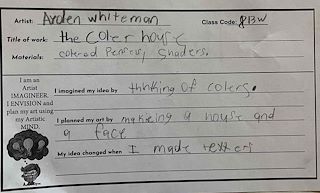 Artist: Arden Whiteman Class Code: 813W
Title of work: the Coler house
Materials: colored Pencils, Shaders.
I am an
Artist
IMAGINEER.
I ENVISION and
plan my art using
my Artistic
MIND.
I imagined my idea by thhking OF colers.
I planned my art by makieing a house and
a face
My idea changed when I made